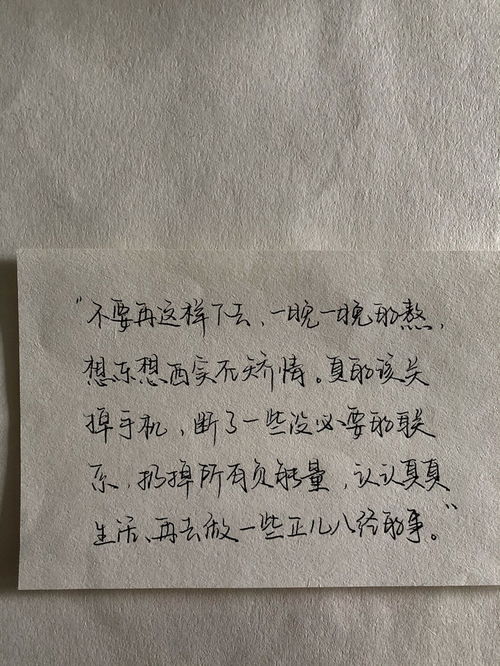 “不要再这样下去，一晚一晚的熬，
想东想西实不矫情。真的该关
掉手机，断了一些没必要的联
系，扔掉所有负能量，认认真真
生活、再去做一些正儿八经的事。”